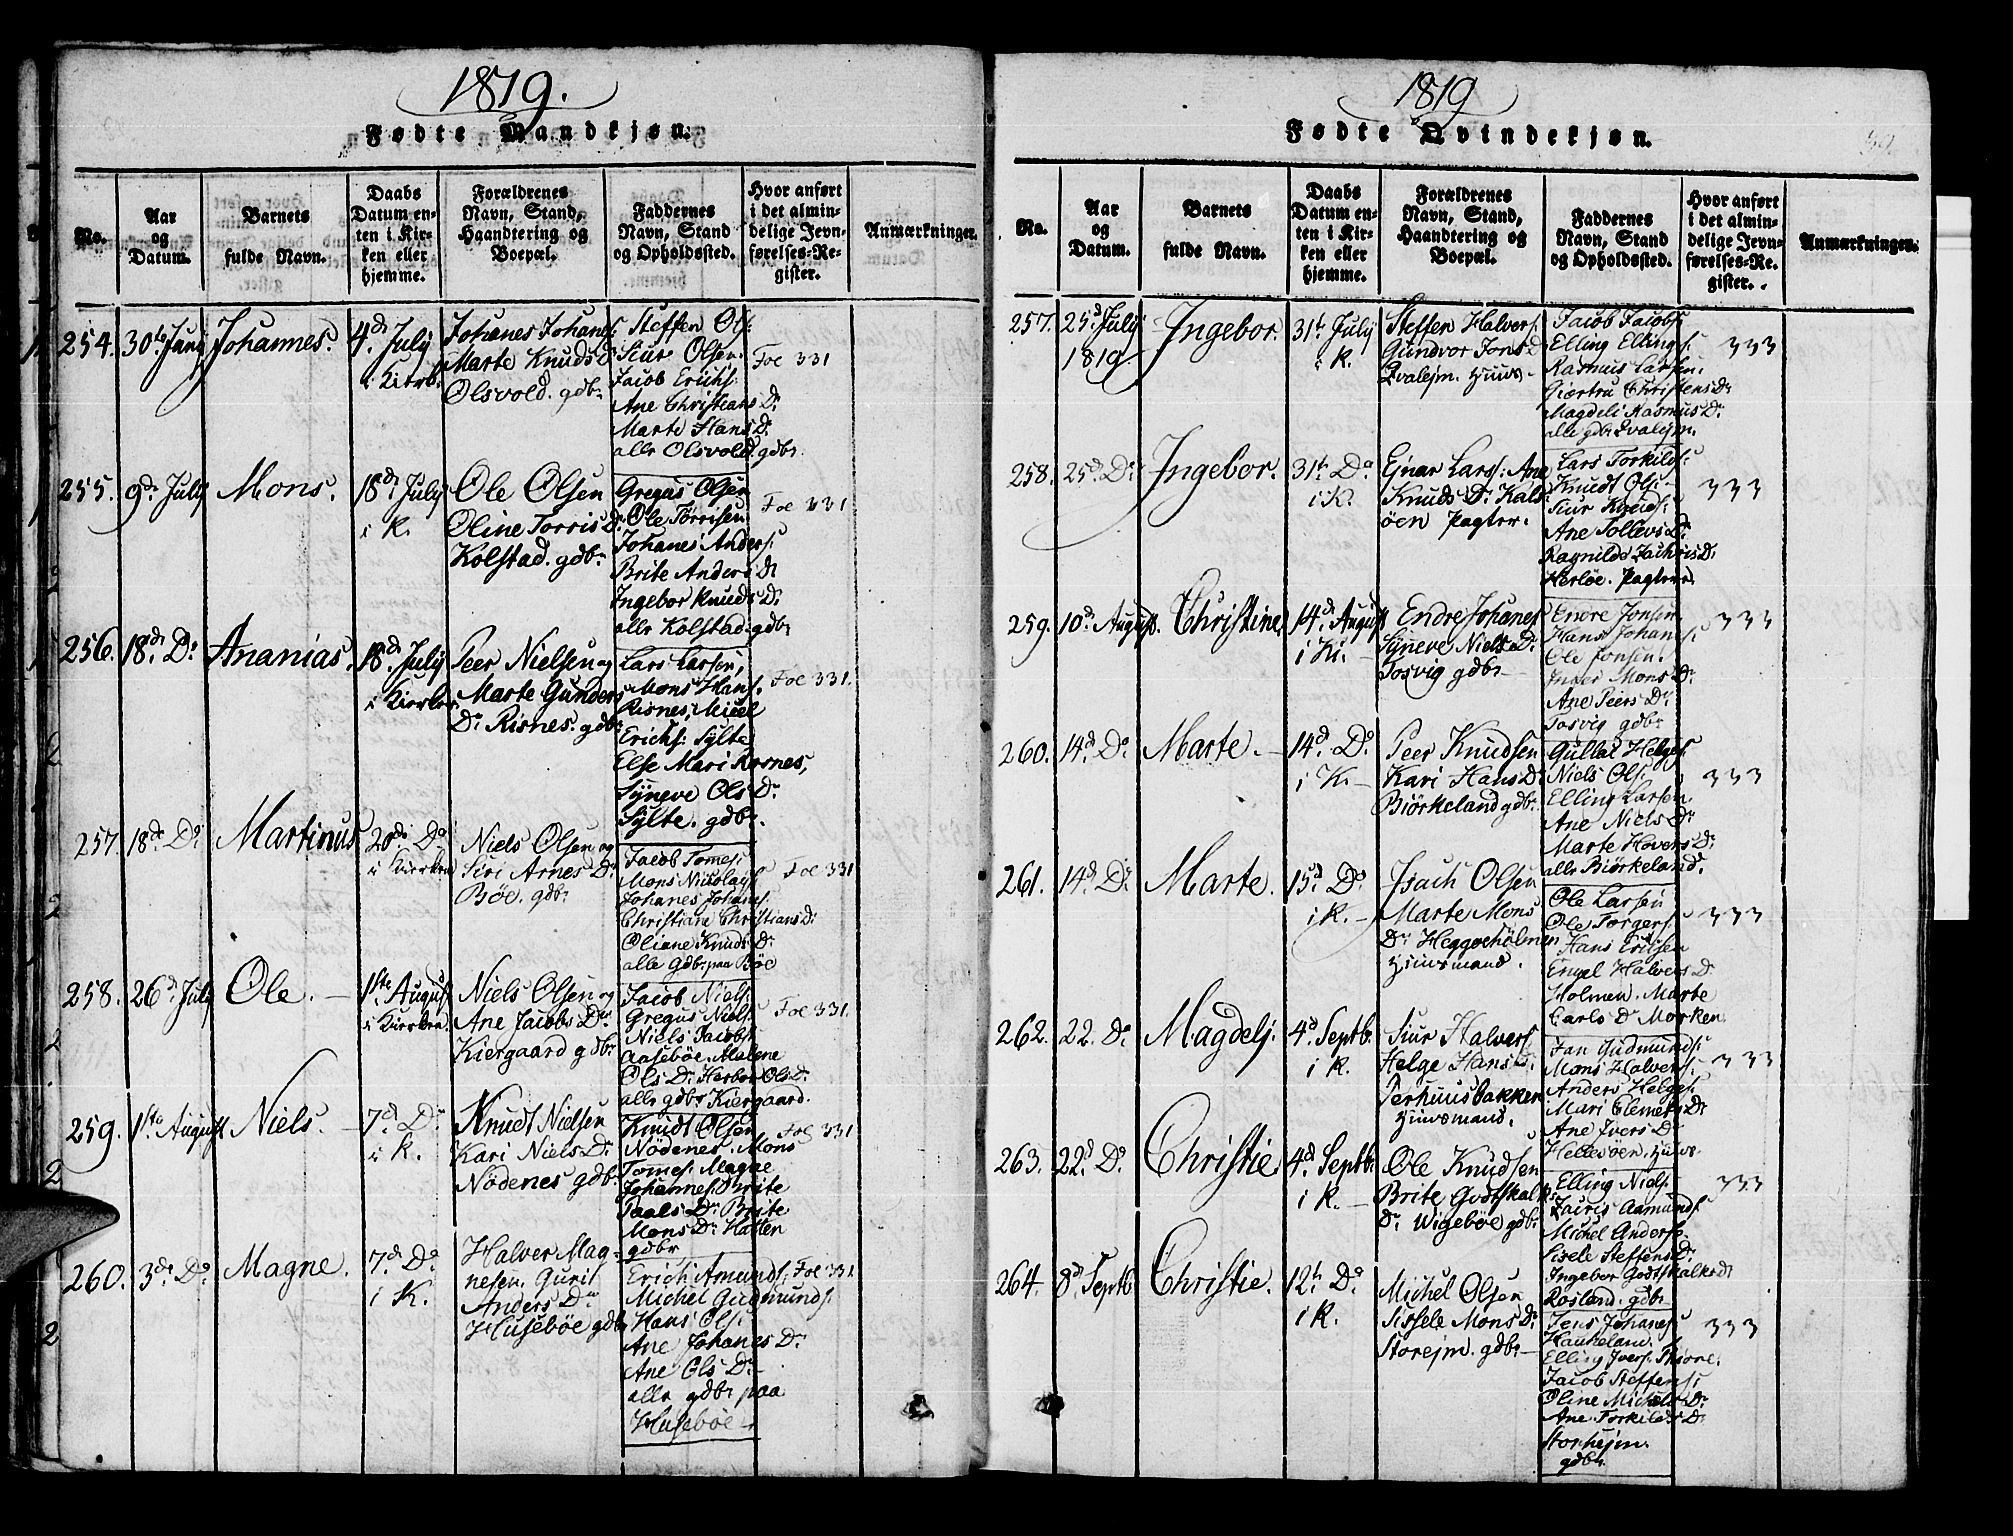 1819.
Fødte Mandkjøn.
No.
Aar
og
Datum.
Barnets
fulde Navn.
Daabs
Datum en-
ten i Kir-
ken eller
hjemme.
Forældrenes
Navn, Stand,
Haandtering og
Boepæl.
Faddernes
Navn, Stand
og Opholdssted.
Hvor anført
i det almin-
delige Jevn-
førelses-Re-
gister.
Anmærkninger.
254.
Johannes.
4.de July
Johanes Johans:
Marte Knuds D.
Olsvold. gdbr
Steffen Ols:
Siur Olsen
Jacob Erichs:
Ane Christians Dr
Marte Hans D.
alle Olsvold gdbr.
Foe 331
255.
9.de July
Mons.
18.de July
i K.
Ole Olsen
Oline Torris D.
Kolstad. gdbr
Gregus Olsen
Ole Torrisen
Johanes Anders:
Brite Anders D
Ingebor Knuds D.
alle Kolstad. gdbr
Foe 331
256.
18.de Do
Ananias.
18.de July
i Kirken
Peer Nielsen og
Marte Gunders
Dr Risnes. gdbr
Lars Larsen,
Mons Hans.
Risnes, Micel
Erichs: Sylte
Else Mari Risnes,
Syneve Ols Dr
Sylte. gdbr.
Foe 331.
257.
18.de Do
Martinus
20.de Do
i Kirken
Niels Olsen og
Siri Arnes Dr
Böe. gdbr
Jacob Tomes:
Mons Nicolays
Johanes Johans.
Christiane Christians Dr
Oliane Knuds Dr
alle Gdbr paa Böe
Foe 331
258.
26.d July
Ole.
1ste August
i Kirken.
Niels Olsen og
Ane Jacobs Dr
Kiergaard gdbr
Jacob Niels.
Gregus Niels.
Niels Jacobs.
Aaseböe. Malene
Ols Dr Herbor Ols D.
alle gdbr Kiergaard.
Foe 331.
259.
1ste August
Niels.
7.d Do
i K.
Knudt Nielsen
Kari Niels Dr
Nödenes gdbr
Knudt Olsen
Nödenes. Mons
Tomes. Magne
Johannes. Brite
Paals Dr Brite
Mons Dr Hatlen
gdbr
Foe 331
260.
3.de Do
Magne.
7.de Do
i K.
Halver Mag-
nesen. Guril
Anders Dr
Huseböe gdbr
Erich Amunds:
Michel Gudmunds:
Hans Ols:
Ane Johanes Dr
Ane Ols Dr
alle gdbr paa
Huseböe
Foe 331
1819
Fødte Qvindekjøn.
39.
No.
Aar
og
Datum.
Barnets
fulde Navn.
Daabs
Datum en-
ten i Kir-
ken eller
hjemme.
Forældrenes
Navn, Stand,
Haandtering og
Boepæl.
Faddernes
Navn, Stand
og Opholdssted.
Hvor anført
i det almin-
delige Jevn-
førelses-Re-
gister.
Anmærkninger.
257.
25.d July
1819
Ingebor.
31te July
i K.
Steffen Halvers.
Gundvor Jons D
Qvalejm. huus-
Jacob Jacobs
Elling Ellings.
Rasmus Larsen.
Giærtru Christens Dr
Magdeli Rasmus Dr
alle gdbr Qvalejm.
333
258.
25.d Do
Ingebor.
31te Do
i K.
Ejnar Lars: Ane
Knuds Dr Kals-
öen Pagter.
Lars Torkilds:
Knudt Ols-
Siur Knuds.
Ane Tollevs Dr
Ragnilde Zachris Dr
Herlöe. Pagtere
333
259.
10.d August.
Christine
14.d August
i Ki.
Endre Johanes
Syneve Niels Dr
Tosvig gdbr-
Endre Jonsen
Hans Johans.
Ole Jonsen.
Inger Mons Dr
Ane Peers Dr
Tosvig gdbr
333
260.
14.d Do
Marte.
14.d Do
i K
Peer Knudsen
Kari Hans Dr
Biörkeland gdbr.
Gullac Helges
Niels Ols:
Elling Larsen
Ane Niels Dr
Marte Hovers Dr
alle Biörkeland.
333
261.
14.d Do
Marte.
15.d Do
i K.
Isach Olsen
Marte Mons
Dr Heggoeholmen
huusmand.
Ole Larsen
Ole Torgers.
Hans Erilsen
Engel Halvers D.
Holmen. Marte
Carls Dr Morken
333
262.
22. Do
Magdelj.
4.d Septbr
i K.
Siur Halvers
Helge Hans D.
Perhuusbakken
huusmand.
Jan Gudmunds:
Mons Halvers.
Anders Helges.
Mari Clemets Dr
Ane Ivers Dr
Hellesöen. huus.
333
263.
22.d Do
Christie
4.d Septbr
i K.
Ole Knudsen
Brite Godtskalks
Dr Wigeböe gdbr
Elling Niels.
Zairis Aamunds
Michel Anders
Sisele Steffens Dr
Ingebor Godtskalks D
Rosland. gdbr
333
264.
8.d Septbr
Christie.
12te Do
i K.
Michel Olsen
Sissele Mons Dr
Storejm. gdbr-
Jens Johanes
Haukeland.
Elling Ivers.
Jacob Steffens:
Oline Michels Dr
Ane Torkilds Dr
Storhejm.
gdbr.
333